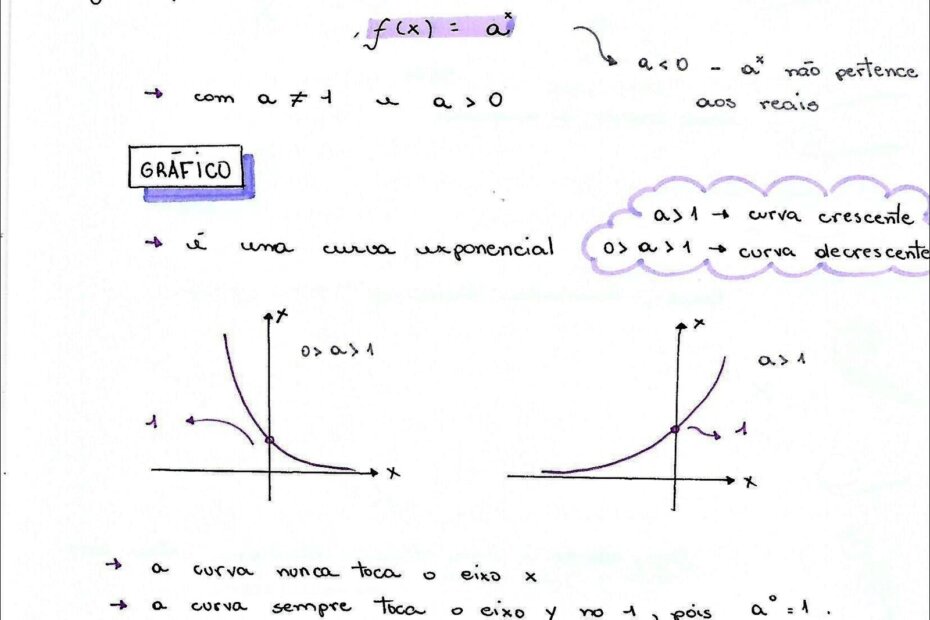 f(x) = aˣ
a < 0 - aˣ não pertence
aos reais
→ com a ≠ 1 e a > 0
GRÁFICO
a > 1 → curva crescente
→ é uma curva exponencial
0 > a > 1 → curva decrescente
x
0 > a > 1
1
x
x
a > 1
1
x
→ a curva nunca toca o eixo x
→ a curva sempre toca o eixo y no 1, póis a⁰ = 1.